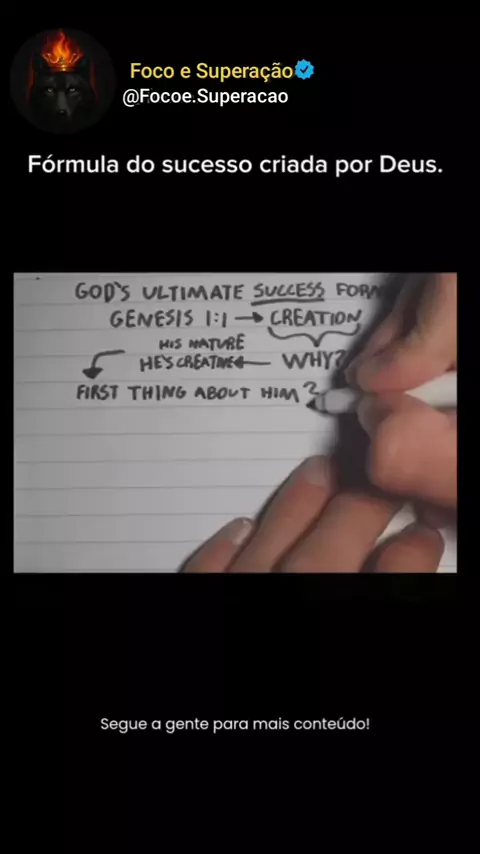 Foco e Superação
@Focoe.Superacao
Fórmula do sucesso criada por Deus.
GOD'S ULTIMATE SUCCESS FORM
GENESIS 1:1 → CREATION
HIS NATURE
HE'S CREATIVE ← WHY?
FIRST THING ABOUT HIM?
Segue a gente para mais conteúdo!